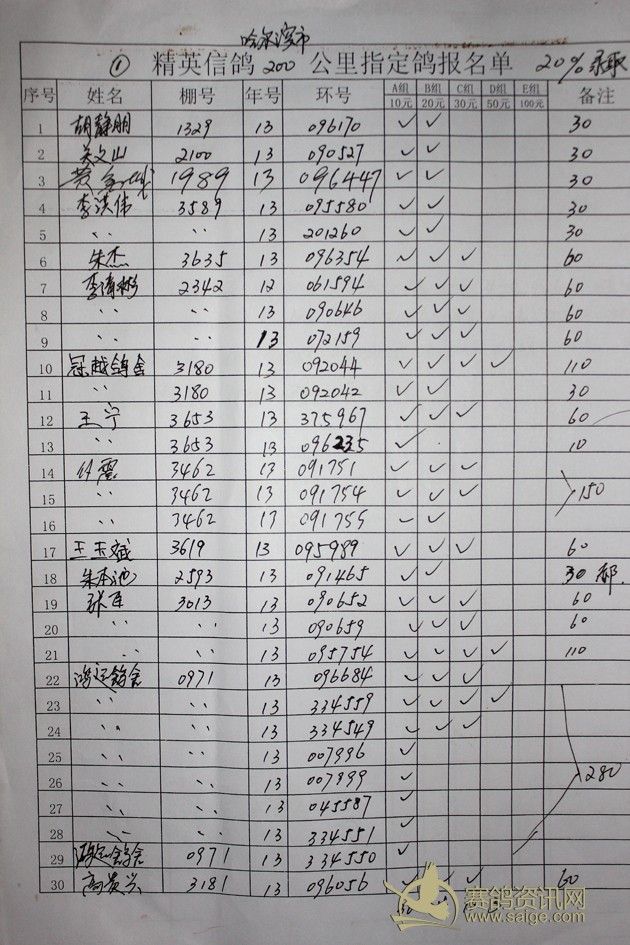 哈尔滨市
① 精英信鸽 200 公里指定鸽报名单 20% 录取
序号 姓名 棚号 年号 环号 A组 10元 B组 20元 C组 30元 D组 50元 E组 100元 备注
1 胡静朋 1329 13 096170 ✓ ✓ 30
2 关文山 2100 13 090527 ✓ ✓ 30
3 黄金 1989 13 096447 ✓ ✓ 30
4 李洪伟 3589 13 095580 ✓ ✓ 30
5 〃 13 201260 ✓ ✓ 30
6 朱杰 3635 13 096354 ✓ ✓ ✓ 60
7 李海彬 2342 12 061594 ✓ ✓ ✓ 60
8 〃 〃 13 090646 ✓ ✓ ✓ 60
9 〃 〃 13 072159 ✓ ✓ ✓ 60
10 冠越鸽舍 3180 13 092044 ✓ ✓ ✓ ✓ 110
11 〃 3180 13 092042 ✓ ✓ 30
12 王宁 3653 13 375967 ✓ ✓ ✓ 60
13 〃 3653 13 096235 ✓ 10
14 付震 3462 13 091751 ✓ ✓ ✓
15 〃 3462 13 091754 ✓ ✓ ✓ 150
16 〃 3462 13 091755 ✓ ✓
17 王玉斌 3619 13 095989 ✓ ✓ ✓ 60
18 朱本池 2593 13 091465 ✓ ✓ 30
19 张臣 3013 13 090652 ✓ ✓ ✓ 60
20 〃 〃 13 090659 ✓ ✓ ✓ 60
21 〃 〃 13 095754 ✓ ✓ ✓ ✓ 110
22 鸿运鸽舍 0971 13 096684 ✓ ✓ ✓
23 〃 〃 13 334559 ✓ ✓ ✓ ✓
24 〃 〃 13 334549 ✓ ✓ ✓
25 〃 〃 13 007996 ✓
26 〃 〃 13 007999 ✓ 280
27 〃 〃 13 045587 ✓
28 〃 〃 13 334551 ✓
29 鸿运鸽舍 0971 13 334550 ✓
30 高贵兴 3181 13 096056 ✓ ✓ ✓ 60
赛鸽资讯网
www.saige.com